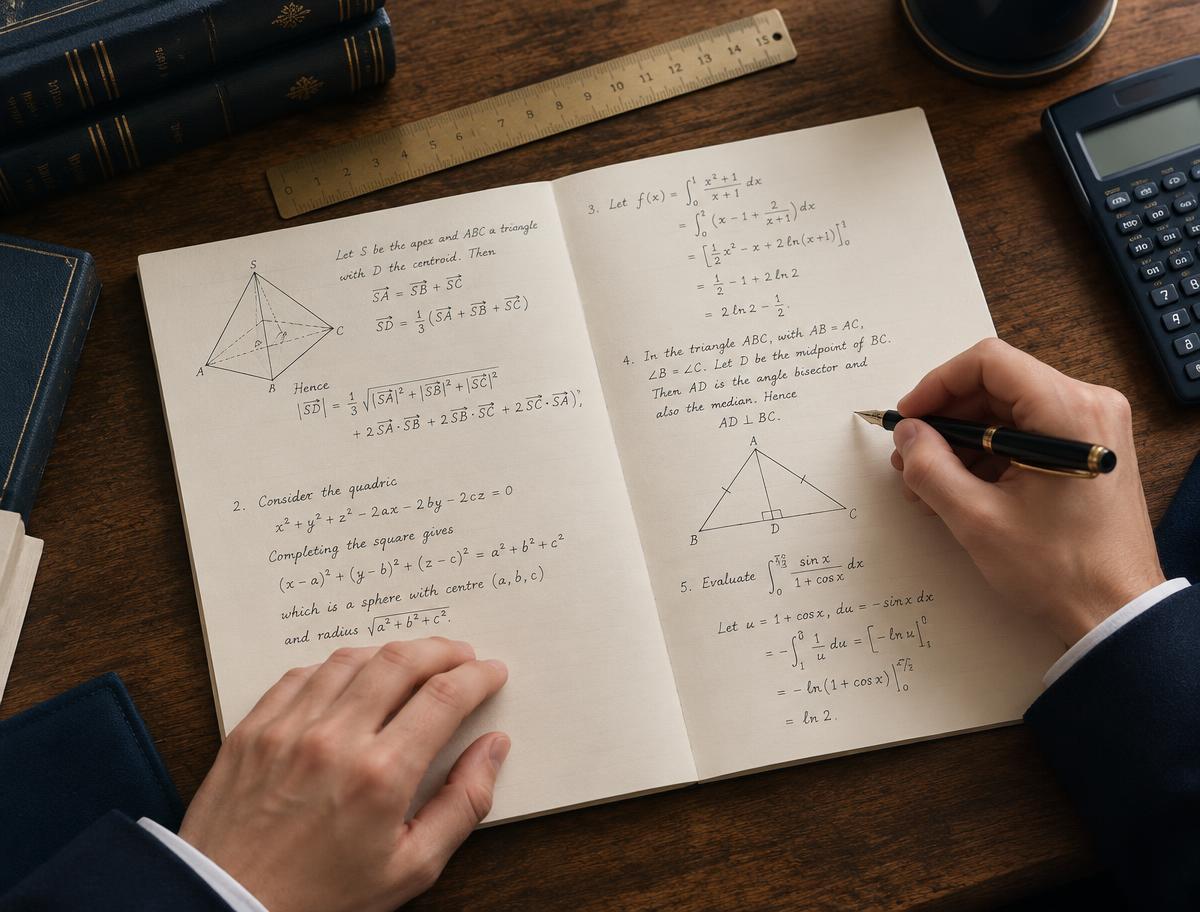 0 1 2 3 4 5 6 7 8 9 10 11 12 13 14 15
S
A
B
C
Let S be the apex and ABC a triangle
with D the centroid. Then
SA→ = SB→ + SC→
SD→ = 1/3 (SA→ + SB→ + SC→)
Hence
|SD→| = 1/3 √(|SA→|² + |SB→|² + |SC→|²
+ 2 SA→ · SB→ + 2 SB→ · SC→ + 2 SC→ · SA→)
2. Consider the quadric
x² + y² + z² − 2ax − 2by − 2cz = 0
Completing the square gives
(x − a)² + (y − b)² + (z − c)² = a² + b² + c²
which is a sphere with centre (a, b, c)
and radius √(a² + b² + c²).
3. Let f(x) = ∫₀¹ (x² + 1)/(x + 1) dx
= ∫₀² (x − 1 + 2/(x+1)) dx
= [1/2 x² − x + 2 ln(x+1)]₀¹
= 1/2 − 1 + 2 ln 2
= 2 ln 2 − 1/2.
4. In the triangle ABC, with AB = AC,
∠B = ∠C. Let D be the midpoint of BC.
Then AD is the angle bisector and
also the median. Hence
AD ⊥ BC.
A
B
D
C
5. Evaluate ∫₀ sin x/(1 + cos x) dx
Let u = 1 + cos x, du = − sin x dx
= −∫₁ 1/u du = [− ln u]⁰
= − ln(1 + cos x)|₀
= ln 2.
7 8